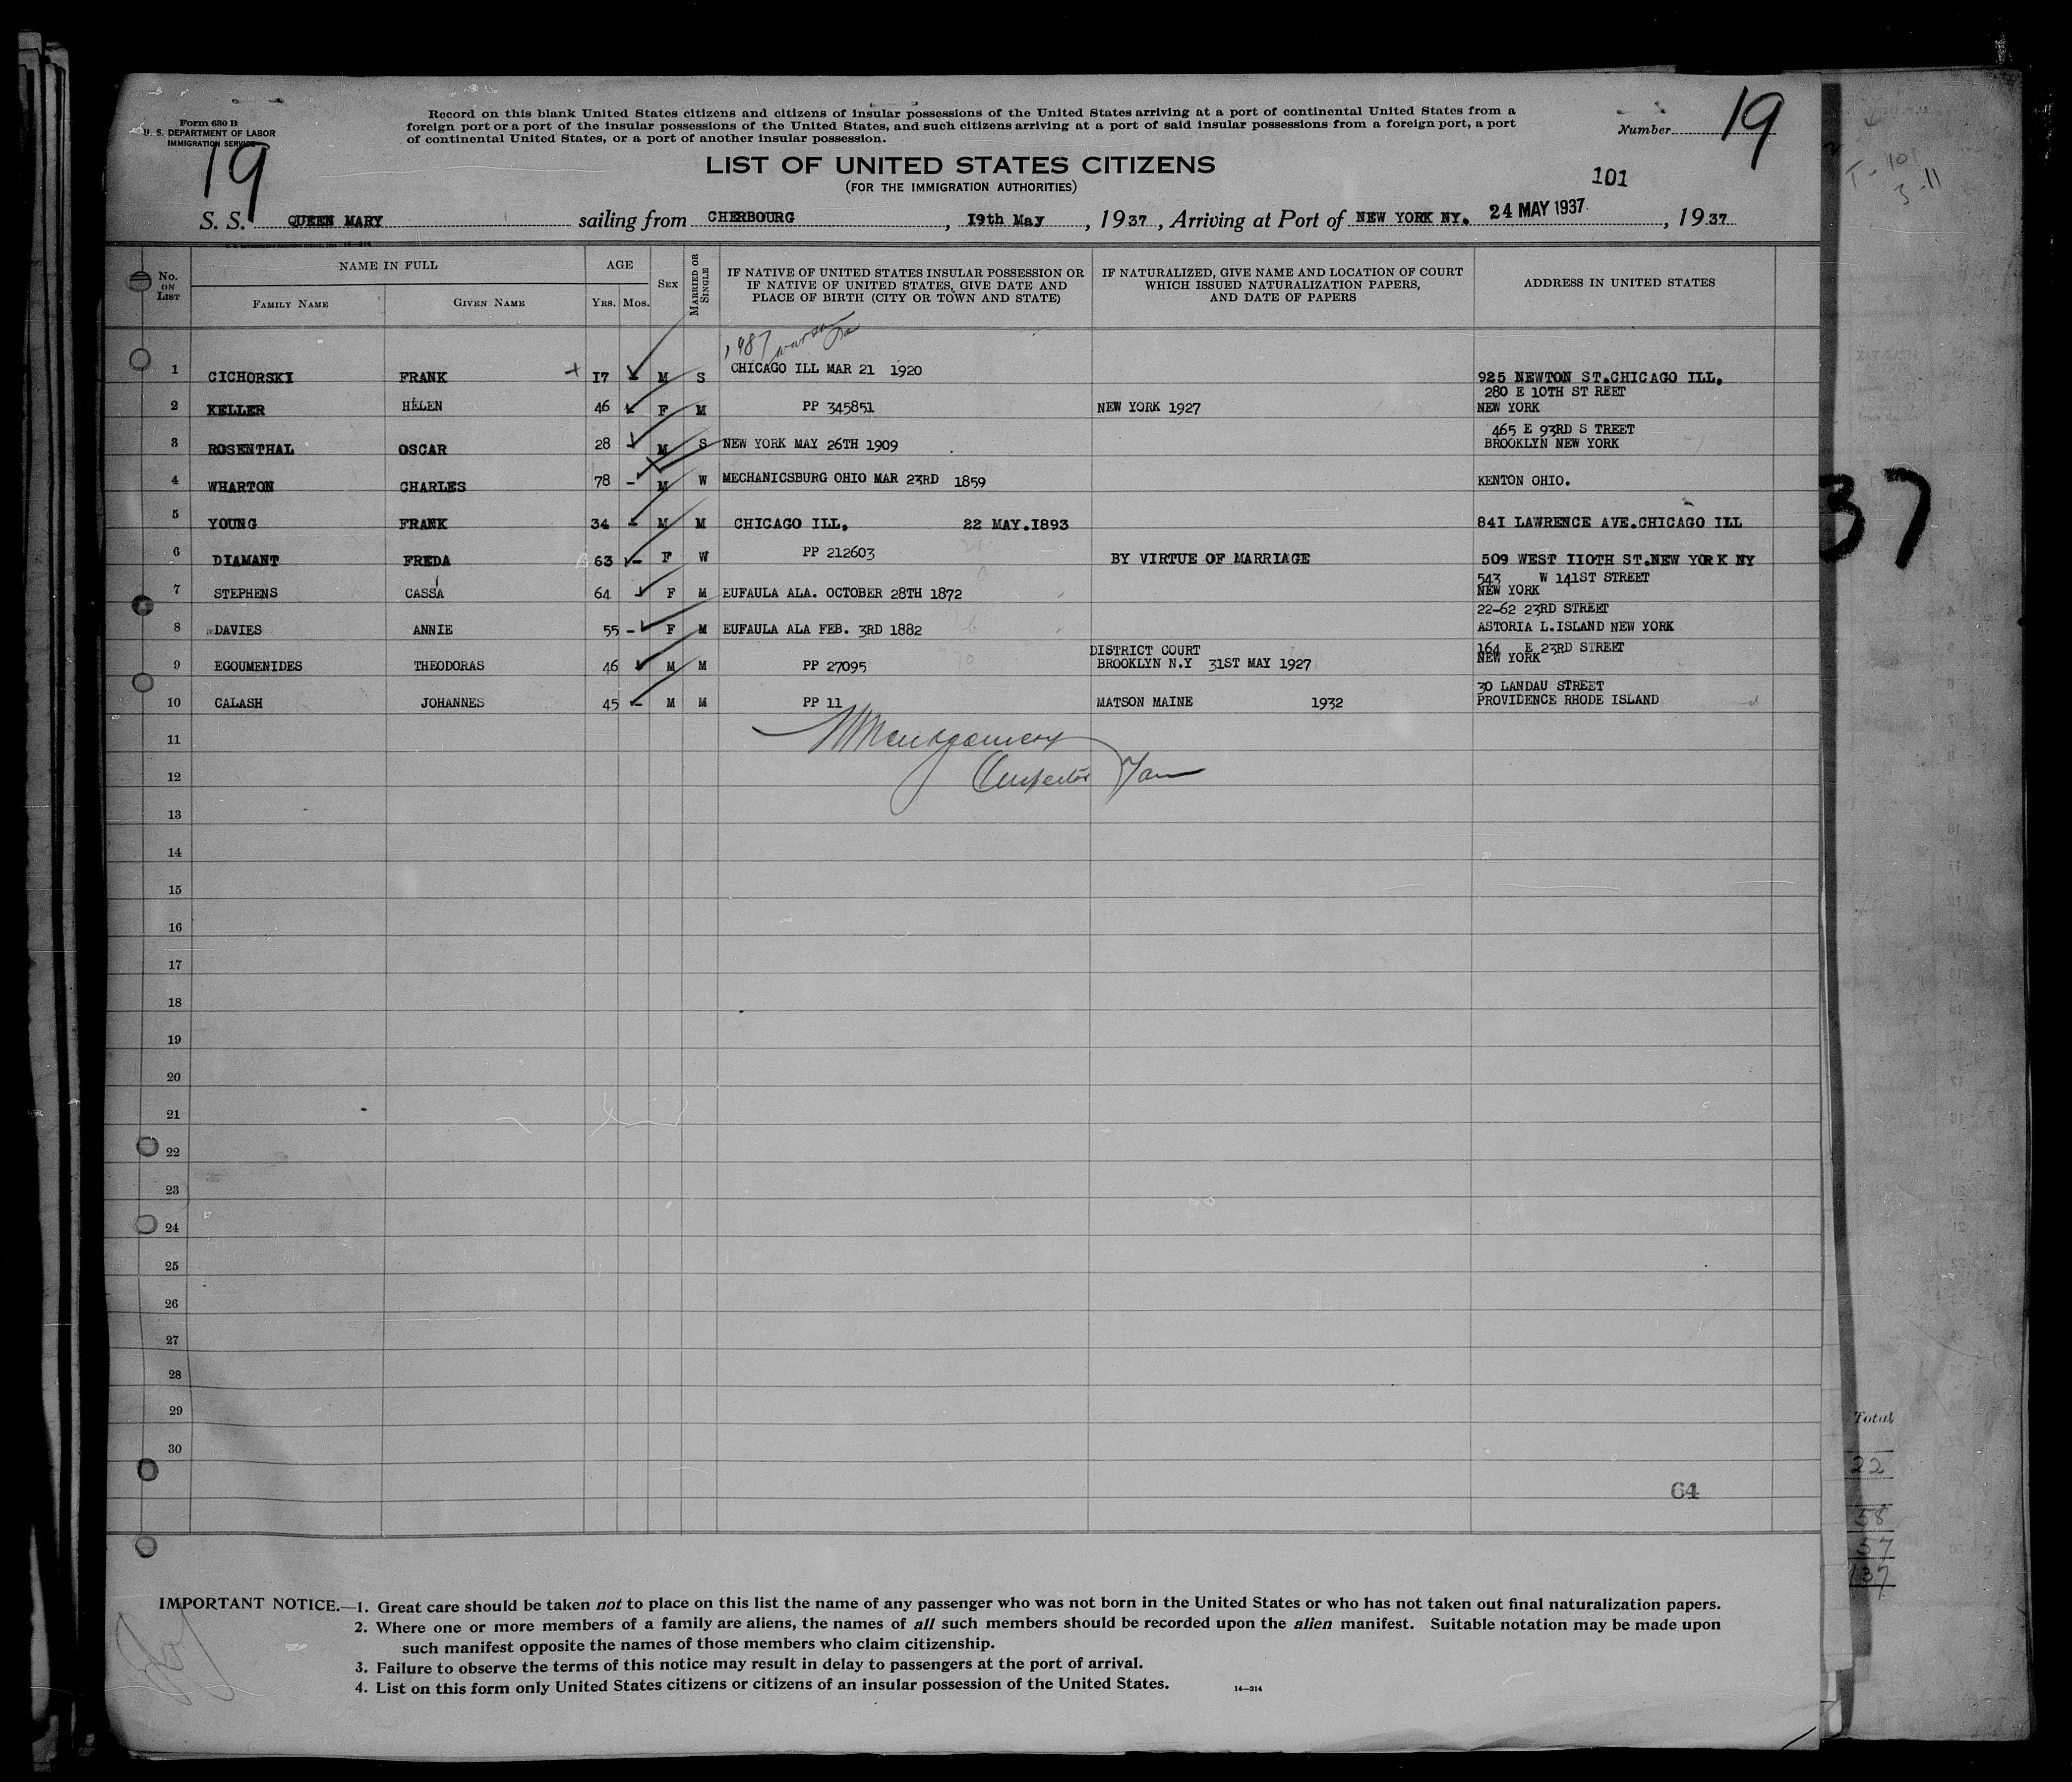 Form 630 B
U. S. DEPARTMENT OF LABOR
IMMIGRATION SERVICE
19
Record on this blank United States citizens and citizens of insular possessions of the United States arriving at a port of continental United States from a
foreign port or a port of the insular possessions of the United States, and such citizens arriving at a port of said insular possessions from a foreign port, a port
of continental United States, or a port of another insular possession.
Number 19
LIST OF UNITED STATES CITIZENS
(FOR THE IMMIGRATION AUTHORITIES)
101
S. S. QUEEN MARY sailing from CHERBOURG, 19th May, 1937, Arriving at Port of NEW YORK NY. 24 MAY 1937, 1937
No. ON LIST
NAME IN FULL
FAMILY NAME GIVEN NAME
AGE
YRS. MOS.
SEX
MARRIED OR SINGLE
IF NATIVE OF UNITED STATES INSULAR POSSESSION OR
IF NATIVE OF UNITED STATES, GIVE DATE AND
PLACE OF BIRTH (CITY OR TOWN AND STATE)
IF NATURALIZED, GIVE NAME AND LOCATION OF COURT
WHICH ISSUED NATURALIZATION PAPERS,
AND DATE OF PAPERS
ADDRESS IN UNITED STATES
1 CICHORSKI FRANK 17 M S CHICAGO ILL MAR 21 1920 925 NEWTON ST.CHICAGO ILL,
280 E 10TH ST REET
2 KELLER HELEN 46 F M PP 345851 NEW YORK 1927 NEW YORK
465 E 93RD S TREET
3 ROSENTHAL OSCAR 28 M S NEW YORK MAY 26TH 1909 BROOKLYN NEW YORK
4 WHARTON CHARLES 78 - M W MECHANICSBURG OHIO MAR 23RD 1859 KENTON OHIO.
5 YOUNG FRANK 34 - M M CHICAGO ILL, 22 MAY.I893 84I LAWRENCE AVE.CHICAGO ILL
6 DIAMANT FREDA 63 - F W PP 212603 BY VIRTUE OF MARRIAGE 509 WEST IIOTH ST.NEW YORK NY
543 W 141ST STREET
7 STEPHENS CASSA 64 F M EUFAULA ALA. OCTOBER 28TH 1872 NEW YORK
22-62 23RD STREET
8 DAVIES ANNIE 55 - F M EUFAULA ALA FEB. 3RD 1882 ASTORIA L.ISLAND NEW YORK
DISTRICT COURT 164 E 23RD STREET
9 EGOUMENIDES THEODORAS 46 M M PP 27095 BROOKLYN N.Y 31ST MAY 1927 NEW YORK
30 LANDAU STREET
10 CALASH JOHANNES 45 - M M PP 11 MATSON MAINE 1932 PROVIDENCE RHODE ISLAND
11
12
13
14
15
16
17
18
19
20
21
22
23
24
25
26
27
28
29
30
64
IMPORTANT NOTICE.—1. Great care should be taken not to place on this list the name of any passenger who was not born in the United States or who has not taken out final naturalization papers.
2. Where one or more members of a family are aliens, the names of all such members should be recorded upon the alien manifest. Suitable notation may be made upon
such manifest opposite the names of those members who claim citizenship.
3. Failure to observe the terms of this notice may result in delay to passengers at the port of arrival.
4. List on this form only United States citizens or citizens of an insular possession of the United States.
14—314
37
Total
22
58
57
137